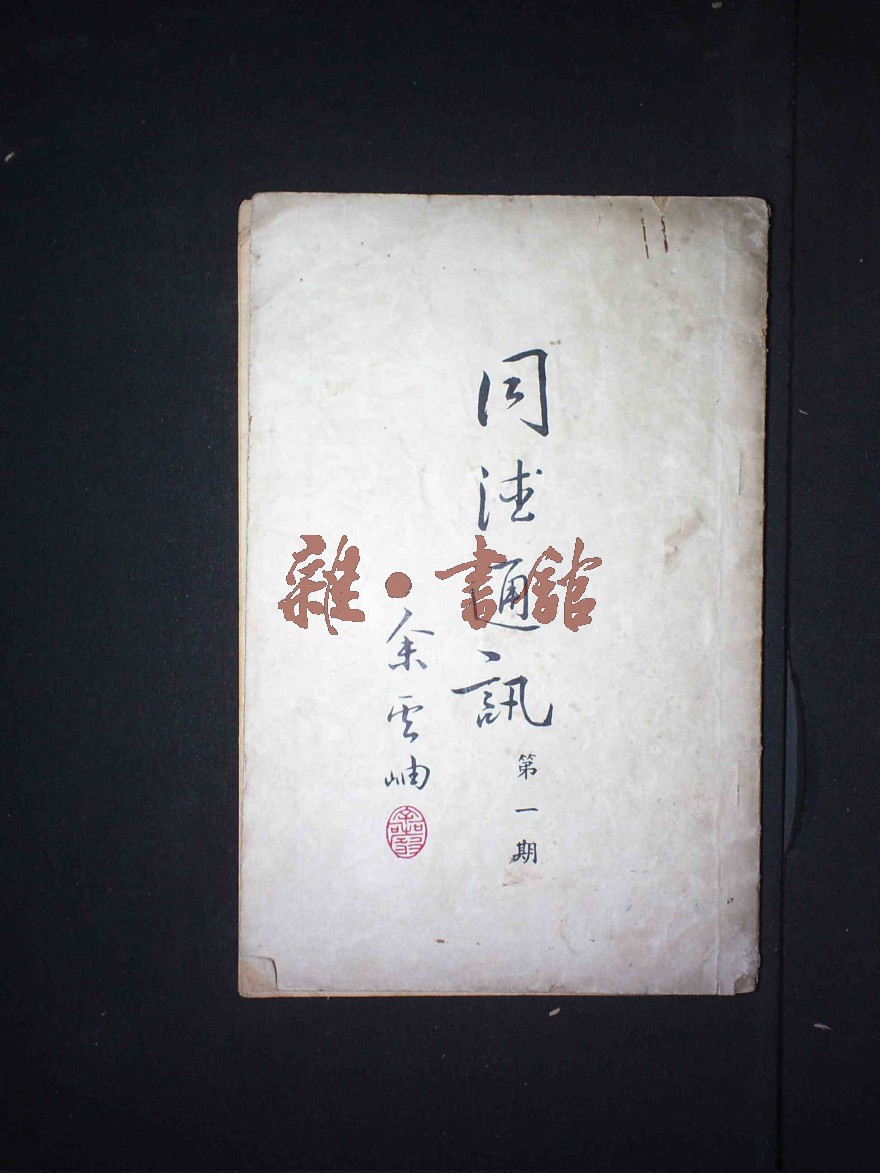 同德通訊
第一期
余雲岫
雜·書館